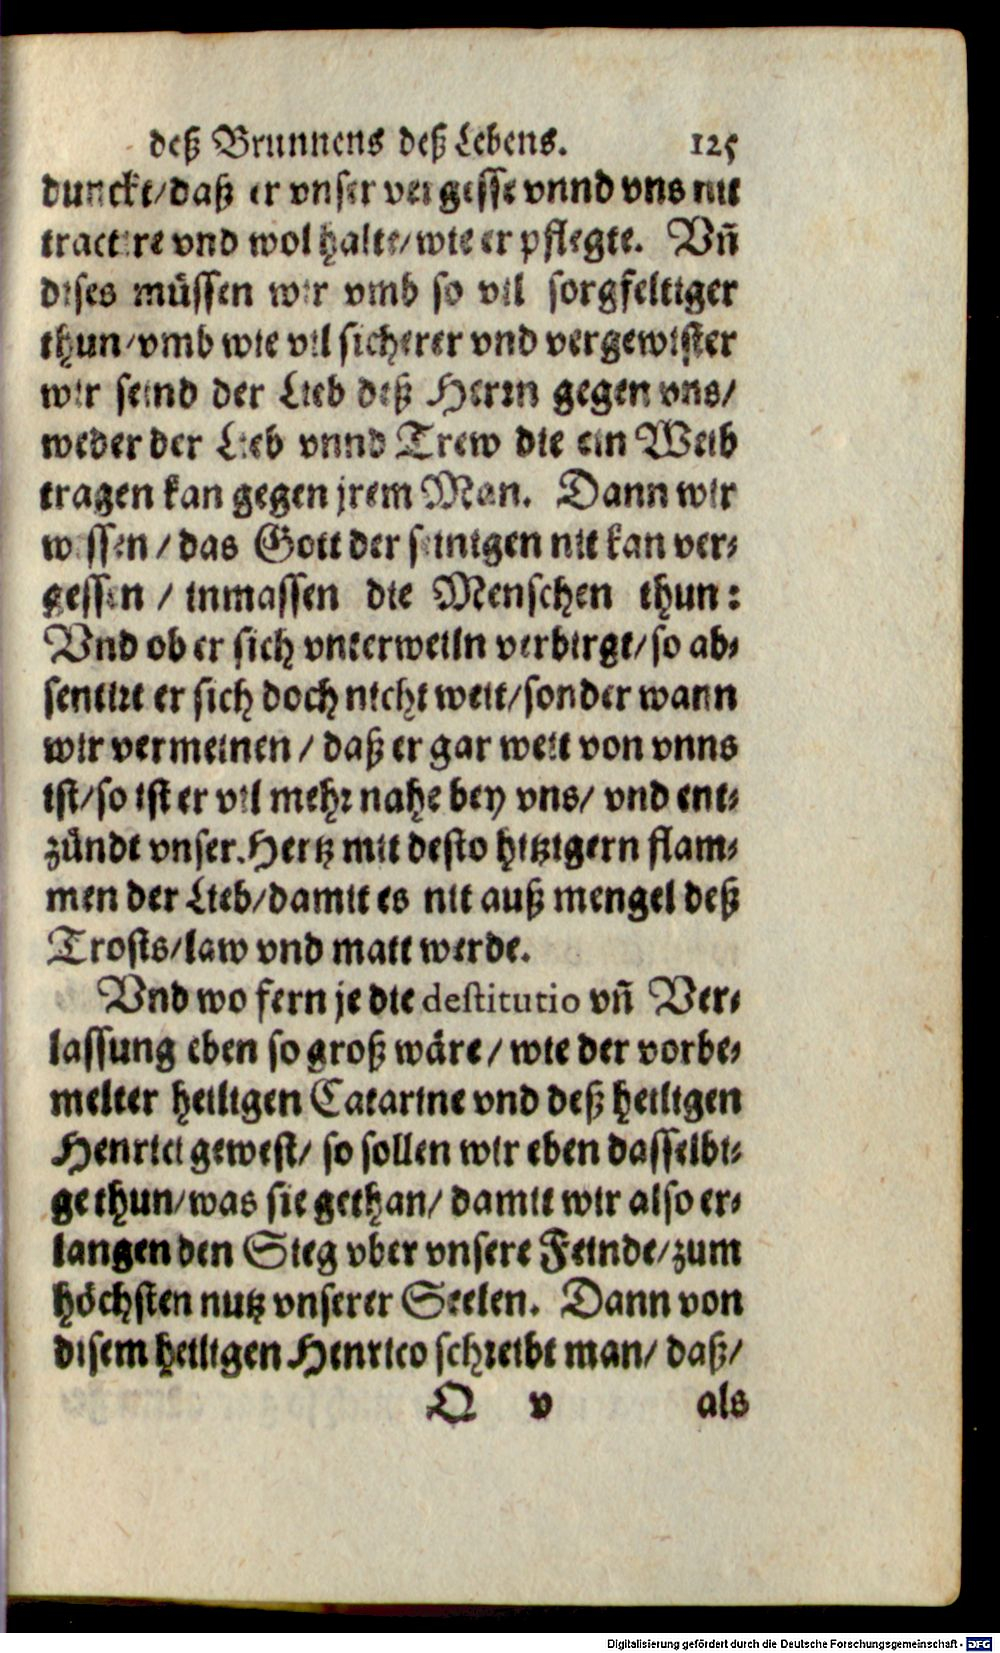 deß Brunnens deß Lebens. 125
duncke/daß er vnser vergesse vnnd vns nit
tractire vnd wol halte/wie er pflegte. Vñ
dises müssen wir vmb so vil sorgfeltiger
thun/vmb wie vil sicherer vnd vergewister
wir seind der Lieb deß Herrn gegen vns/
weder der Lieb vnnd Trew die ein Weib
tragen kan gegen jrem Man. Dann wir
wissen/das Gott der seinigen nit kan ver-
gessen/inmassen die Menschen thun:
Vnd ob er sich vnterweiln verbirgt/so ab-
sentirt er sich doch nicht weit/sonder wann
wir vermeinen/daß er gar weit von vnns
ist/so ist er vil mehr nahe bey vns/vnd ent-
zündt vnser Hertz mit desto hitzigern flam-
men der Lieb/damit es nit auß mengel deß
Trosts/law vnd matt werde.
Vnd wo fern je die destitutio vñ Ver-
lassung eben so groß wäre/wie der vorbe-
melter heiligen Catarine vnd deß heiligen
Henrici gewest/so sollen wir eben dasselbi-
ge thun/was sie gethan/damit wir also er-
langen den Sieg vber vnsere Feinde/zum
höchsten nutz vnserer Seelen. Dann von
disem heiligen Henrico schreibt man/daß/
Q v als
Digitalisierung gefördert durch die Deutsche Forschungsgemeinschaft - DFG